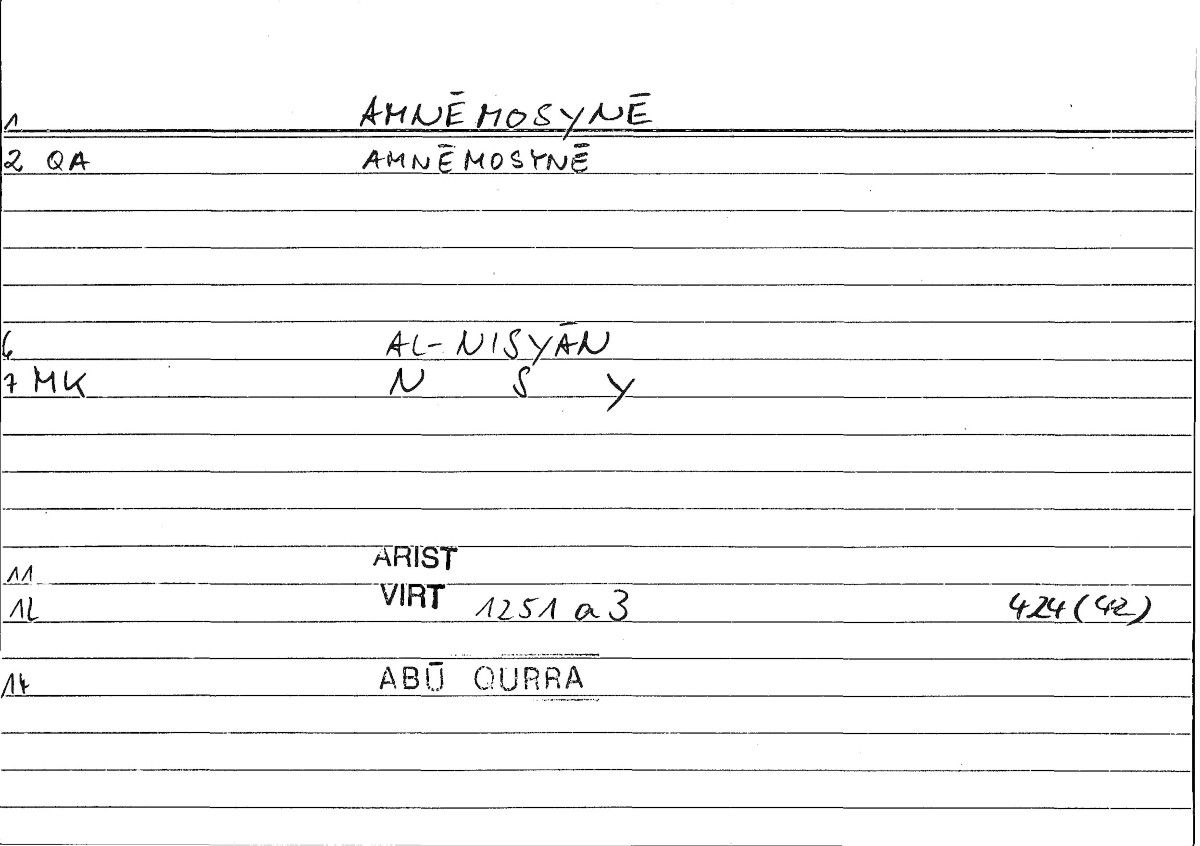 1 AMNĒMOSYNĒ
2 QA AMNĒMOSYNĒ
6 AL-NISYĀN
7 MK N S Y
11 ARIST
12 VIRT 1251 a 3 424 (42)
14 ABŪ QURRA